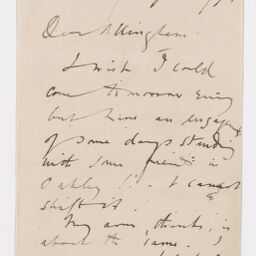 Dear Allingham
I wish I could
come tomorrow evening
but have an engagemt
of some days standing
with some friends in
Oakley St. & cannot
shift it.
My arm, thanks, is
about the same. I